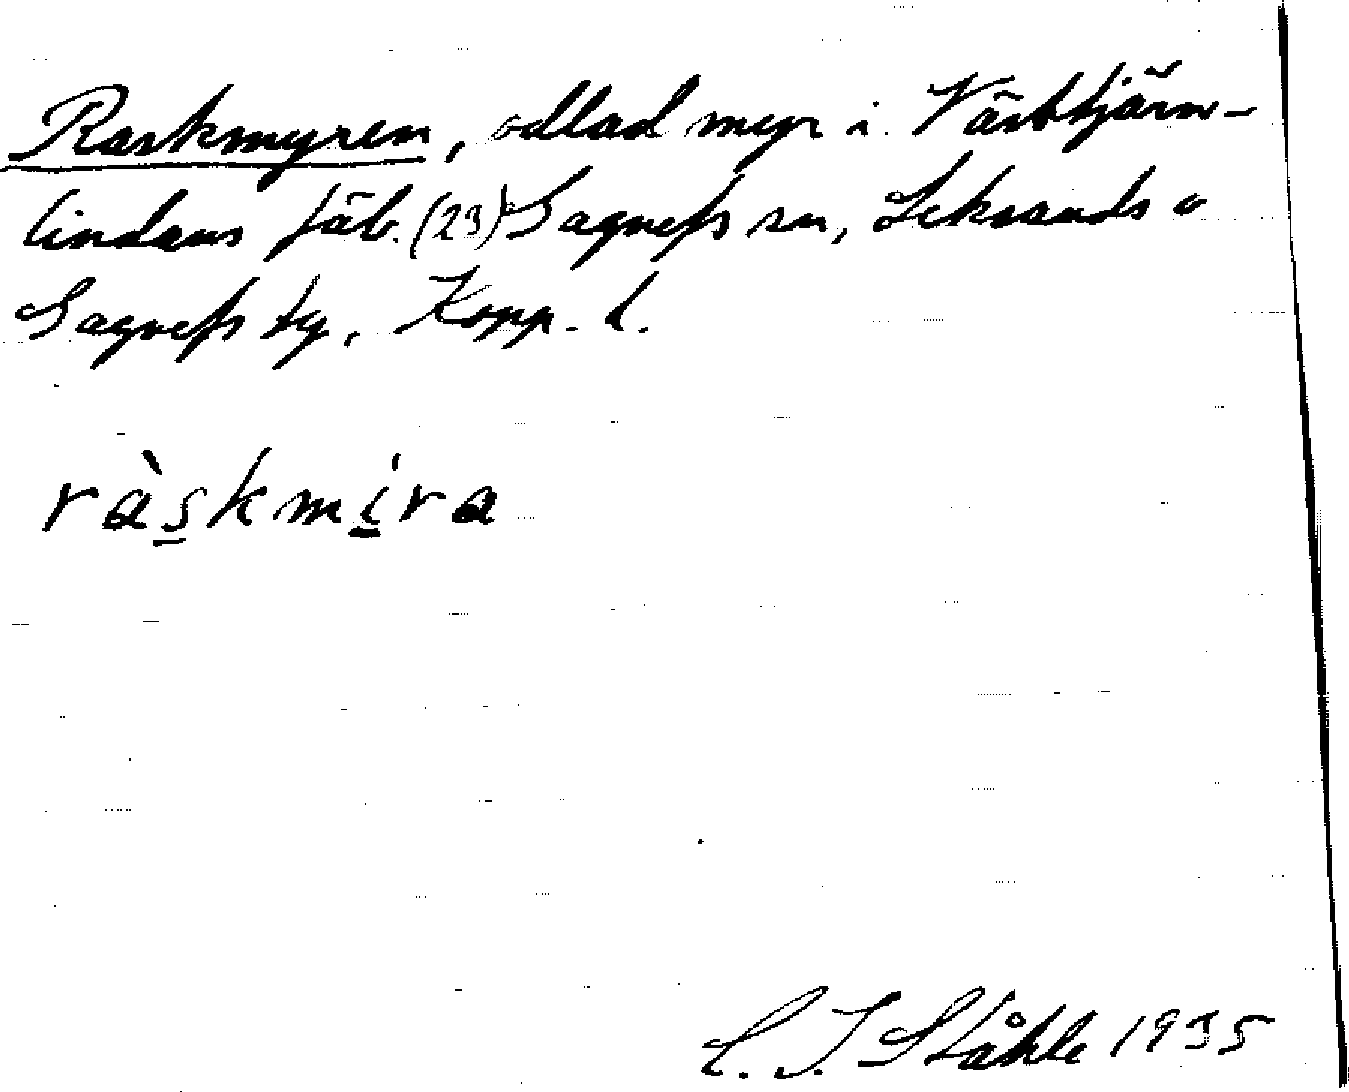 Raskmyren, odlad myr i Västtjärn-
lindans fäb. (23) Gagnefs sn, Leksands o
Gagnefs tg, Kopp. l.
ràs̲kmi̲ra
C. I. Ståhle 1935